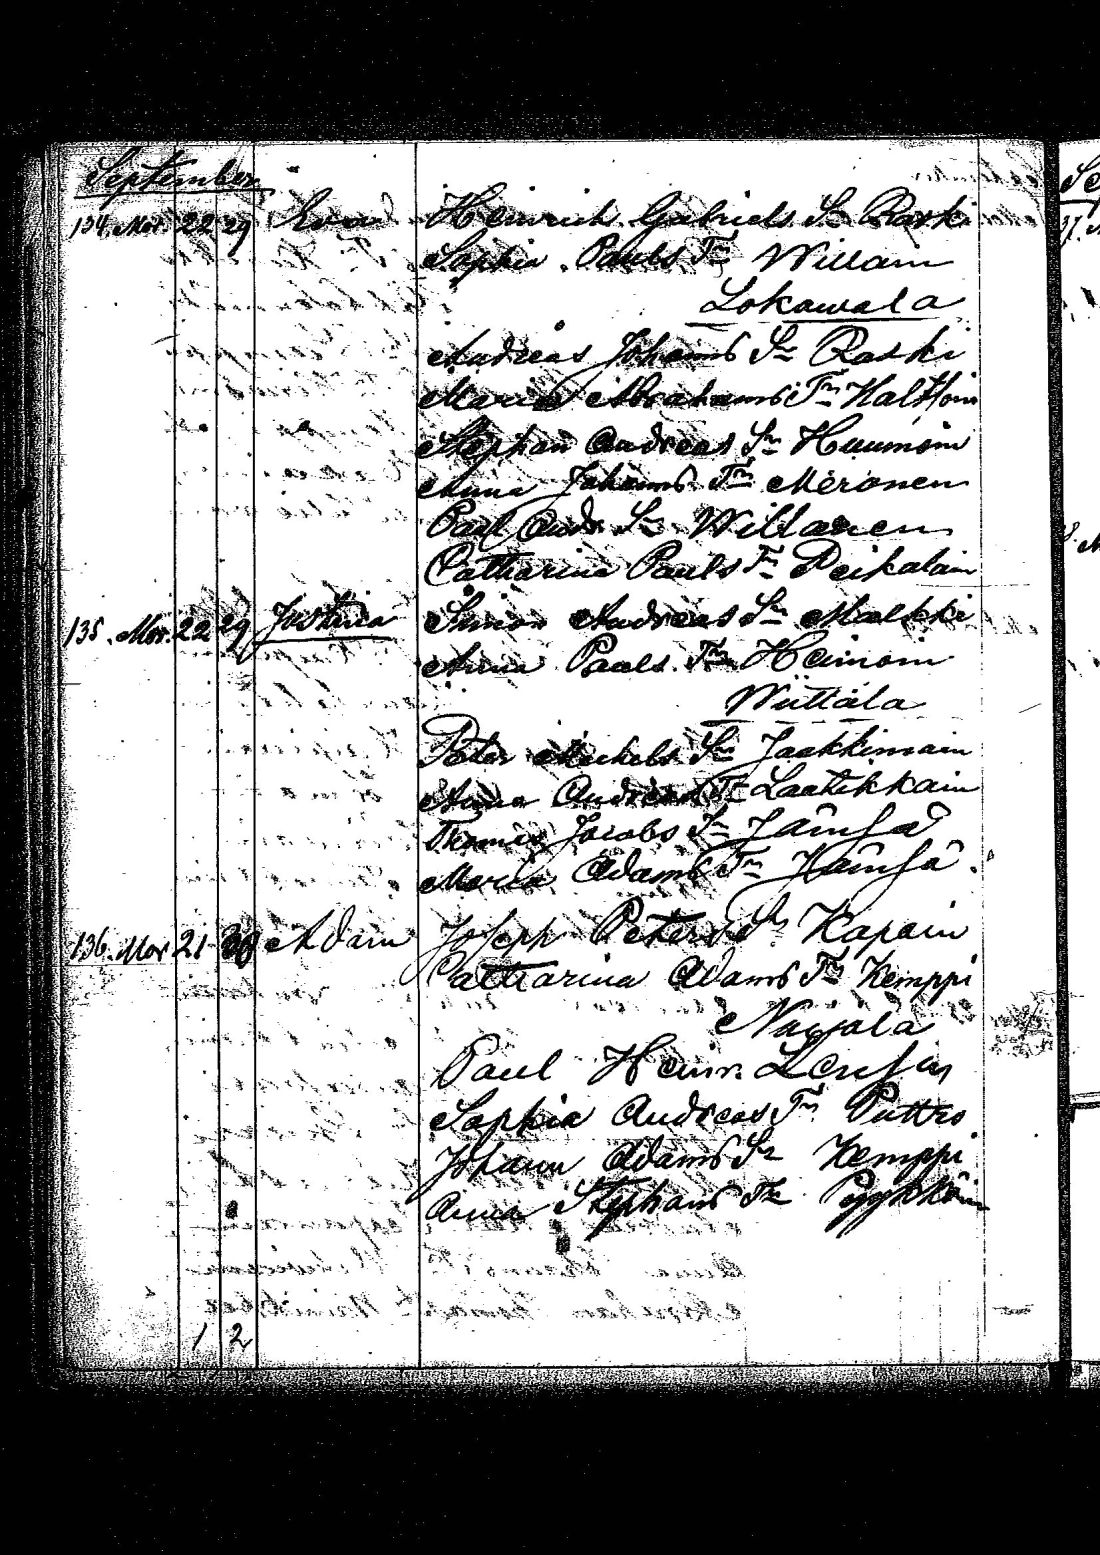 September
134. Mor. 22 29 Eva Heinrich Gabriels Sn Raski
Sophia Pauls Tr Willain
Lokawala
Andreas Johanns Sn Raski
Maria Abrahams Trn
Stephan Andreas Sn
Anna Johanns Trn Meronen
Paul Andr. Sn Willanen
Catharina Pauls Tr Peikalain
135. Mor. 22 29 Justina Simon Andreas Sn Malkki
Anna Pauls Trn Heimoin
Wüttala
Peter Michels Sn Jaakkimain
Anna Andreas Tr Laatikkain
Thomas Jacobs Sn Jämsä
Maria Adams Trn Hämsä.
136. Mor 21 Adam Joseph Peters Sn Kapain
Catharina Adams Trn Kemppi
Nawala
Paul Heinr.
Sophia Andreas Trn Puttro
Johann Adams Sn Kemppi
Anna Stephans Tr Pyykköin
1 2